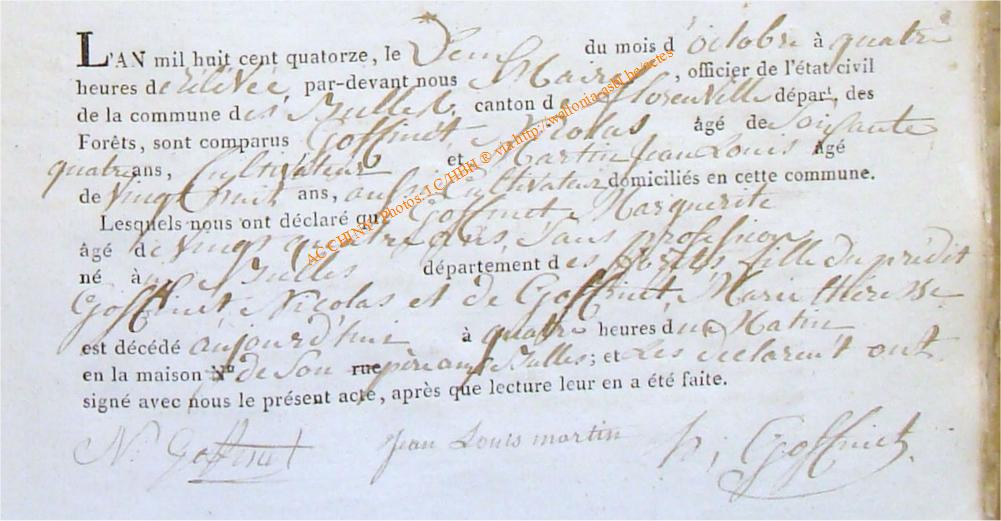 L'AN mil huit cent quatorze, le Deux du mois d'octobre à quatre
heures de rélévée, par-devant nous Maire, officier de l'état civil
de la commune des Bulles, canton de florenville départ. des
Forêts, sont comparus Goffinet, Nicolas âgé de Soixante
quatre ans, Cultivateur et Martin Jean Louis Âgé
de vingt huit ans, aussi Cultivateur domiciliés en cette commune.
Lesquels nous ont déclaré que Goffinet Marguerite
âgé de vingt quatre ans, Sans profession
né à Bulles département des forêts, fille du prédit
Goffinet, Nicolas et de Goffinet, Marie théresse
est décédé aujourd'hui à quatre heures du Matin
en la maison N° de Son rue père aux Bulles; et Les declarent ont
signé avec nous le présent acte, après que lecture leur en a été faite.
N. Goffinet Jean Louis martin h, Goffinet.
ACCHINY Photos: LC/HBH ® via http://wallonia-asbl.be/actes